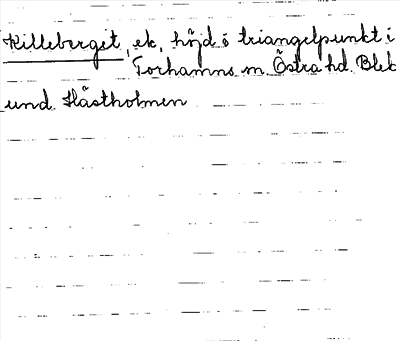 Killeberget, ek, höjd o triangelpunkt i
Torhamns sn Östra hd. Blek
und. Hästholmen